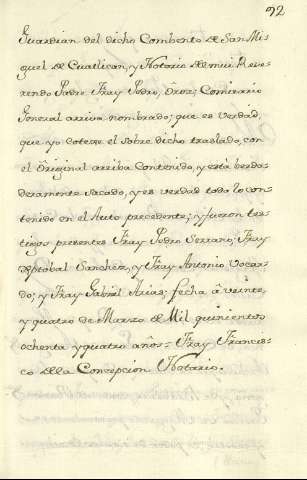 92
Guardian del dicho Combento de San Mi-
guel de Cuatlican, y Notario de mui Reve-
rendo Padre Fray Pedro, Oroz; Comisario
General arriva nombrado; que es verdad,
que yo cotexe el sobre dicho traslado, con
el Original arriba Contenido, y està berda-
deramente sacado, y es verdad todo lo con-
tenido en el Auto precedente; y fueron tes-
tigos presentes Fray Pedro Serrano; Fray
Cristobal Sanchez, y Fray Antonio
do; y Fray Gabriel Arias; fecha à veinte,
y quatro de Marzo de Mil quinientos
ochenta y quatro años = Fray Francis-
co de la Concepcion Notario.